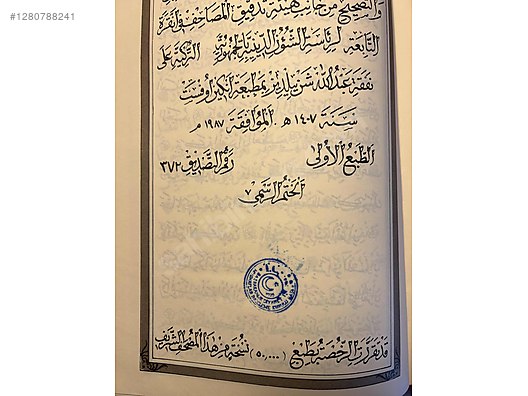 #1280788241
والتصحيح من جانب هيئة تدقيق المصاحف في انقرة
التابعة لرئاسة الشئون الدينية بالجمهورية التركية على
نفقة عبد الله شن ييلديز بمطبعة انكين اوفست
سنة ١٤٠٧ هـ الموافقة ١٩٨٧ م
الطبع الأولى رقم التصديق ٣٧٢
الختم الرسمي ٧
قد تقررت الرخصة بطبع (٥٠,٠٠٠) نسخة من هذا المصحف الشريف
sahibinden.com